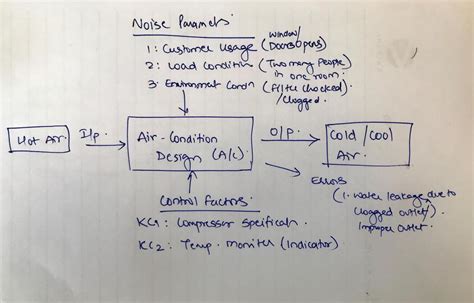 Noise Parameters
1: Customer Usage (window/
Doors opens)
2: Load Condition (Two many People
in one room.
3: Environment Condn (Filter Chocked)
/Clogged.
Hot Air.
I/p
Air-Condition
Design (A/c).
O/P.
Cold/Cool
Air.
Errors
(1. Water leakage due to
Clogged outlet/
Improper outlet.
Control Factors
KC1: Compressor Specificatn
KC2: Temp. moniter (Indicator)